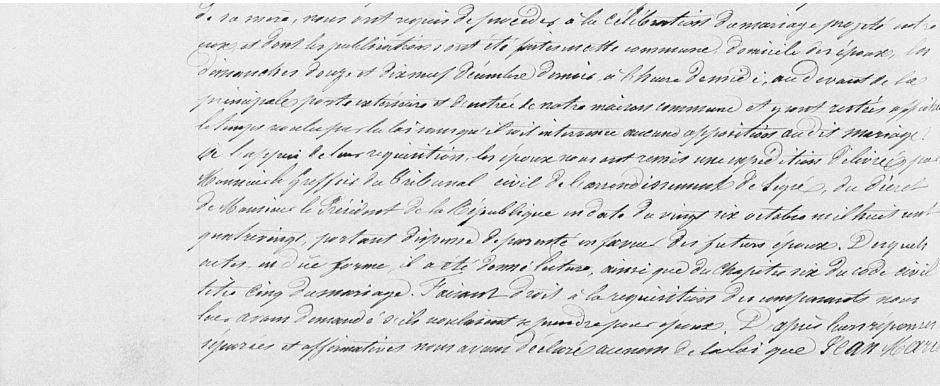 de sa mère, nous ont requis de procéder à la célébration du mariage projeté entre
eux, et dont les publications ont été faites en cette commune, domicile des époux, les
dimanches douze et dix neuf décembre dernier, à l'heure de midi, au devant de la
principale porte extérieure et d'entrée de notre maison commune et y sont restées affichées
le temps voulu par la loi sans qu'il soit intervenu aucune opposition au dit mariage.
A l'appui de leur réquisition, les époux nous ont remis une expédition délivrée par
Monsieur le Greffier du Tribunal civil de l'arrondissement de Segré, du décret
de Monsieur le Président de la République en date du vingt six octobre mil huit cent
quatre vingt, portant dispense de parenté en faveur des futurs époux. Desquels
actes, en due forme, il a été donné lecture, ainsi que du chapitre six du code civil
titre cinq du mariage. Faisant droit à la réquisition des comparants nous
leur avons demandé s'ils voulaient se prendre pour époux. D'après leurs réponses
séparées et affirmatives nous avons déclaré au nom de la loi que Jean Marie